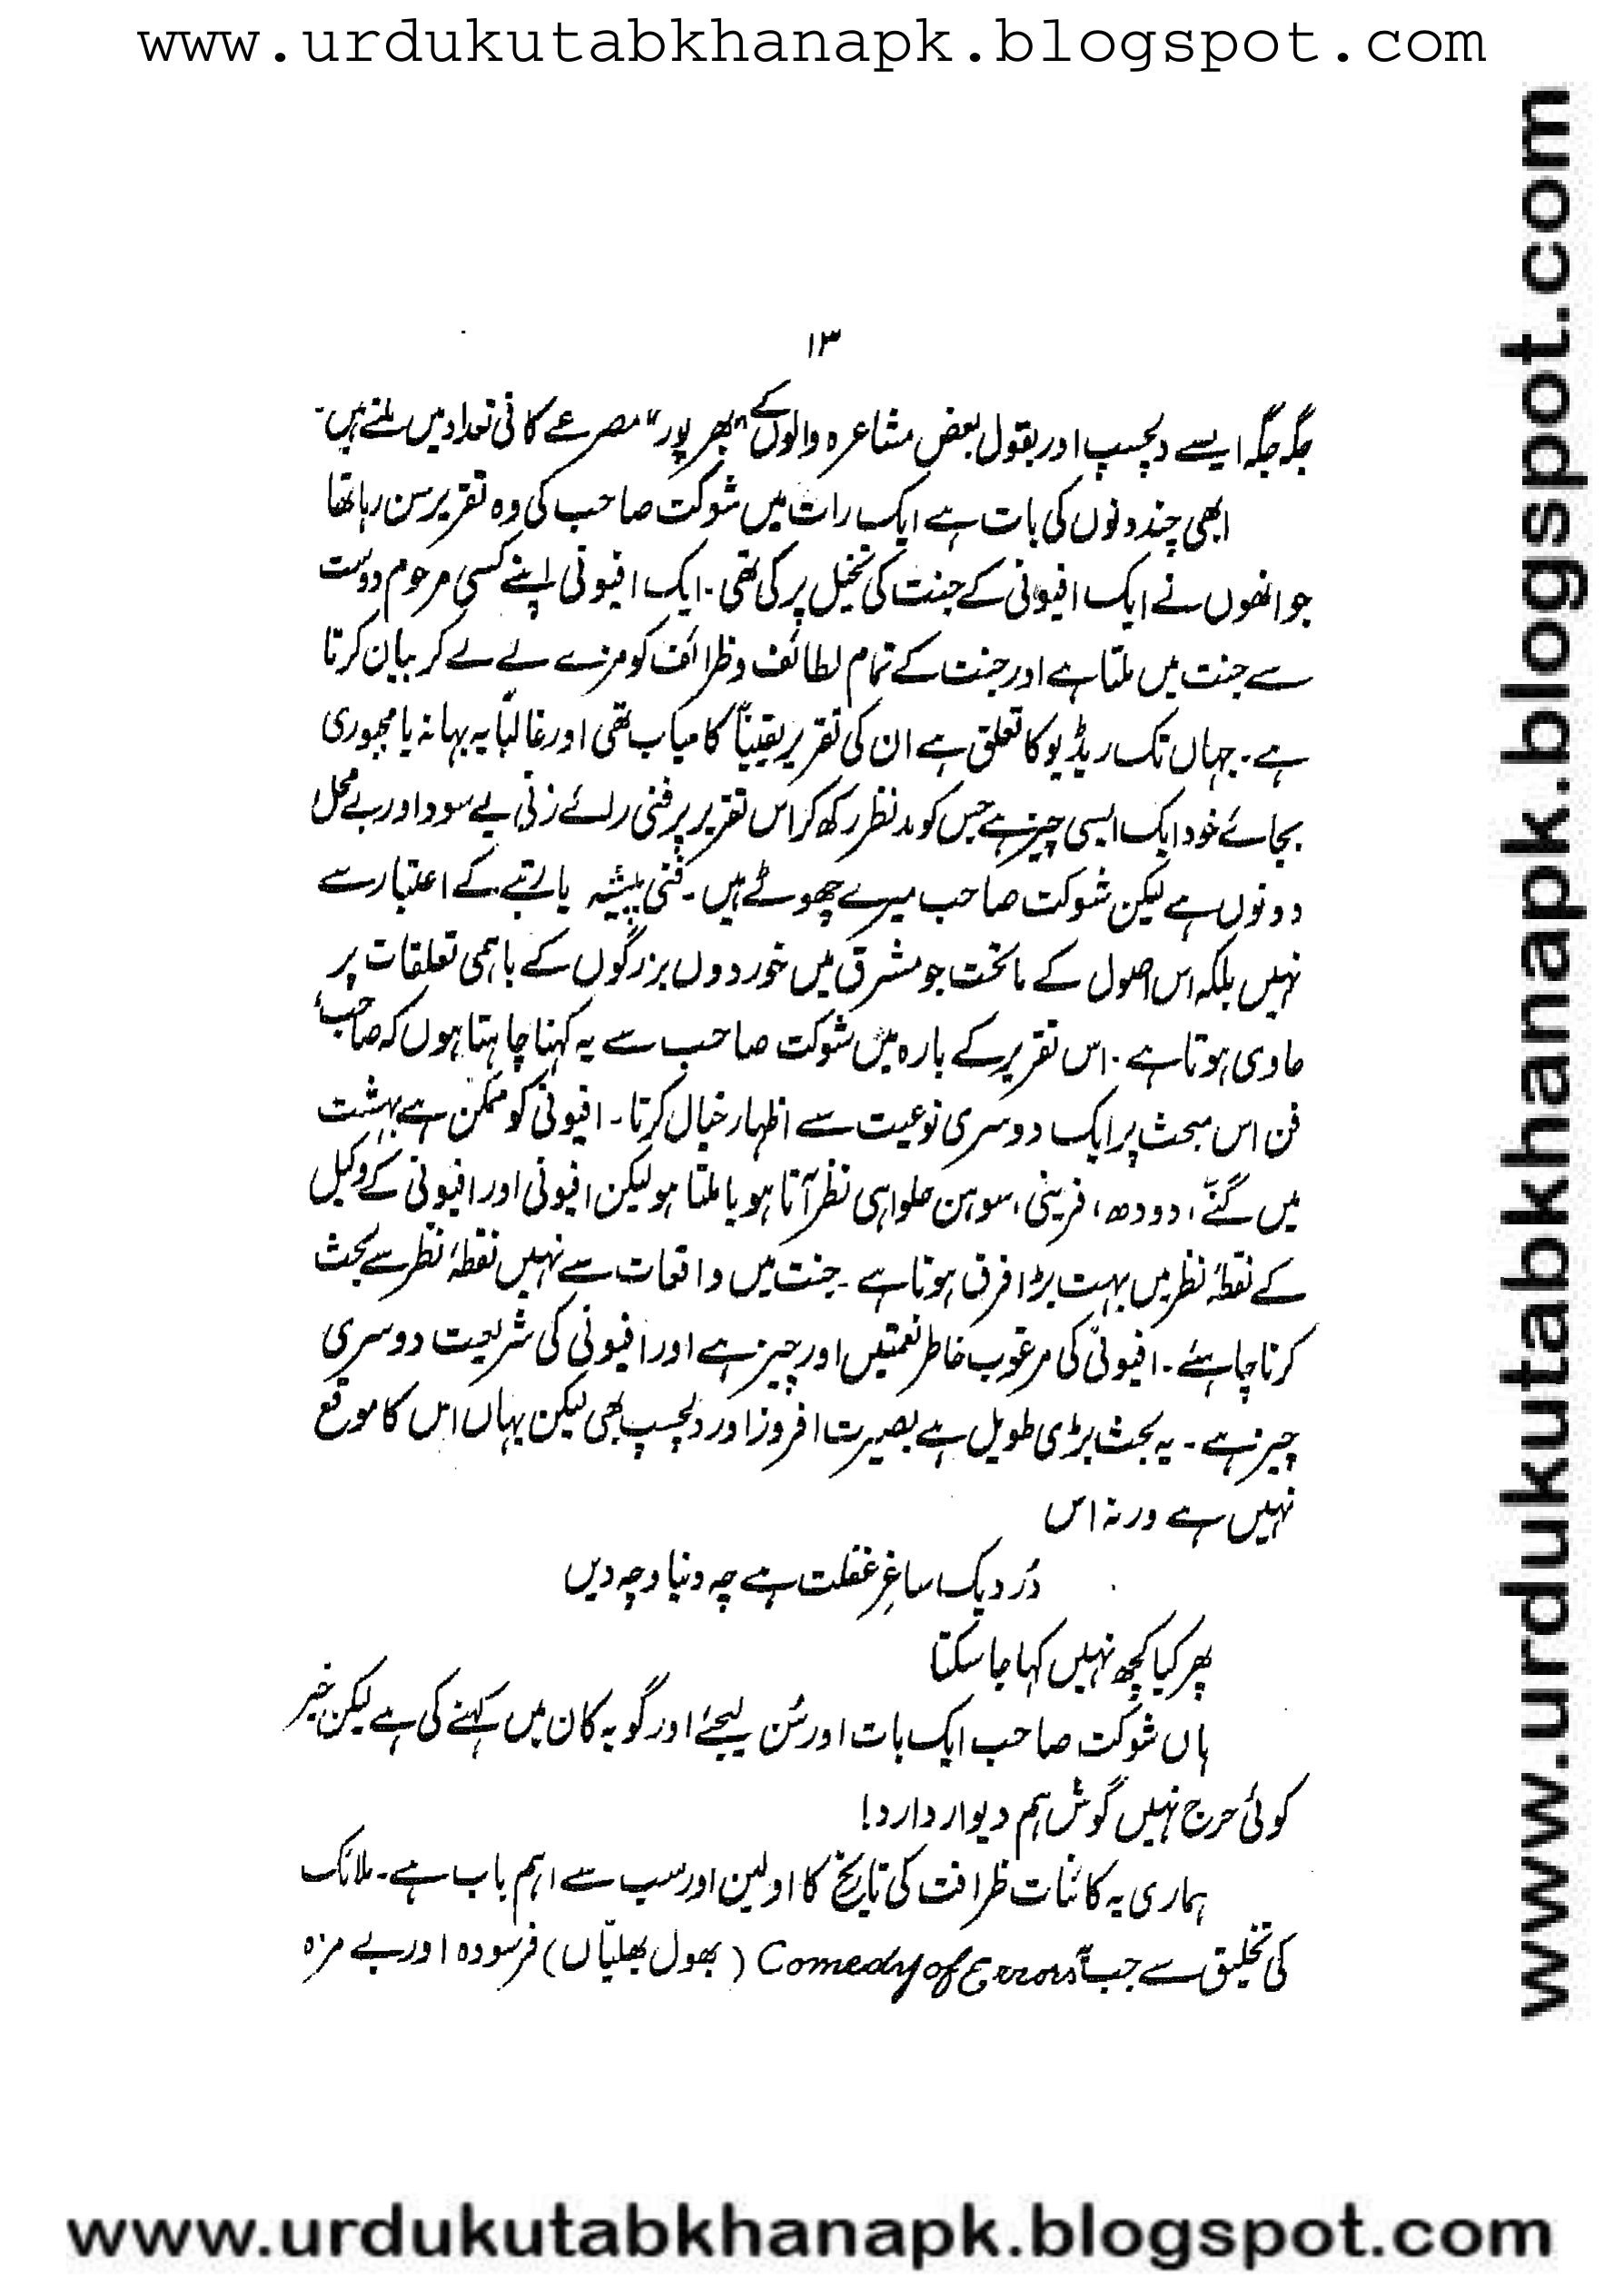 www.urdukutabkhanapk.blogspot.com
۱۳
جگہ جگہ ایسے دلچسپ اور بقول بعض مشاعرہ والوں کے "بھر پور" مصرعے کافی تعداد میں ملتے ہیں۔
ابھی چند دنوں کی بات ہے ایک رات میں شوکت صاحب کی وہ تقریر سن رہا تھا
جو انھوں نے ایک افیونی کے جنت کی تخیل پر کی تھی۔ ایک افیونی اپنے کسی مرحوم دوست
سے جنت میں ملتا ہے اور جنت کے تمام لطائف وظرائف کو مزے لے لے کر بیان کرتا
ہے۔ جہاں تک ریڈیو کا تعلق ہے ان کی تقریر یقیناً کامیاب تھی اور غالباً یہ بہانہ یا مجبوری
بجائے خود ایک ایسی چیز ہے جس کو مد نظر رکھ کر اس تقریر پر فنی رائے زنی بے سود اور بے محل
دونوں ہے لیکن شوکت صاحب میرے چھوٹے ہیں۔ فنی پیشہ یا رتبے کے اعتبار سے
نہیں بلکہ اس اصول کے ماتحت جو مشرق میں خوردوں بزرگوں کے باہمی تعلقات پر
حاوی ہوتا ہے۔ اس تقریر کے بارہ میں شوکت صاحب سے یہ کہنا چاہتا ہوں کہ صاحب
فن اس مبحث پر ایک دوسری نوعیت سے اظہار خیال کرتا۔ افیونی کو ممکن ہے بہشت
میں گنے، دودھ، فرینی، سوہن حلوا ہی نظر آتا ہو یا ملتا ہو لیکن افیونی اور افیونی کے وکیل
کے نقطۂ نظر میں بہت بڑا فرق ہوتا ہے۔ جنت میں واقعات سے نہیں نقطۂ نظر سے بحث
کرنا چاہئے۔ افیونی کی مرغوب خاطر نعمتیں اور چیز ہے اور افیونی کی شریعت دوسری
چیز ہے۔ یہ بحث بڑی طویل ہے بصیرت افروز اور دلچسپ بھی لیکن یہاں اس کا موقع
نہیں ہے ورنہ اس
دُرد یک ساغرِ غفلت ہے چہ دنیا و چہ دیں
پھر کیا کچھ نہیں کہا جا سکتا
ہاں شوکت صاحب ایک بات اور سُن لیجئے اور گو یہ کان میں کہنے کی ہے لیکن خیر
کوئی حرج نہیں گوش ہم دیوار دارد!
ہماری یہ کائنات ظرافت کی تاریخ کا اولین اور سب سے اہم باب ہے۔ ملائک
کی تخلیق سے جب "Comedy of Errors" (بھول بھلیّاں) فرسودہ اور بے مزہ
www.urdukutabkhanapk.blogspot.com
www.urdukutabkhanapk.blogspot.com